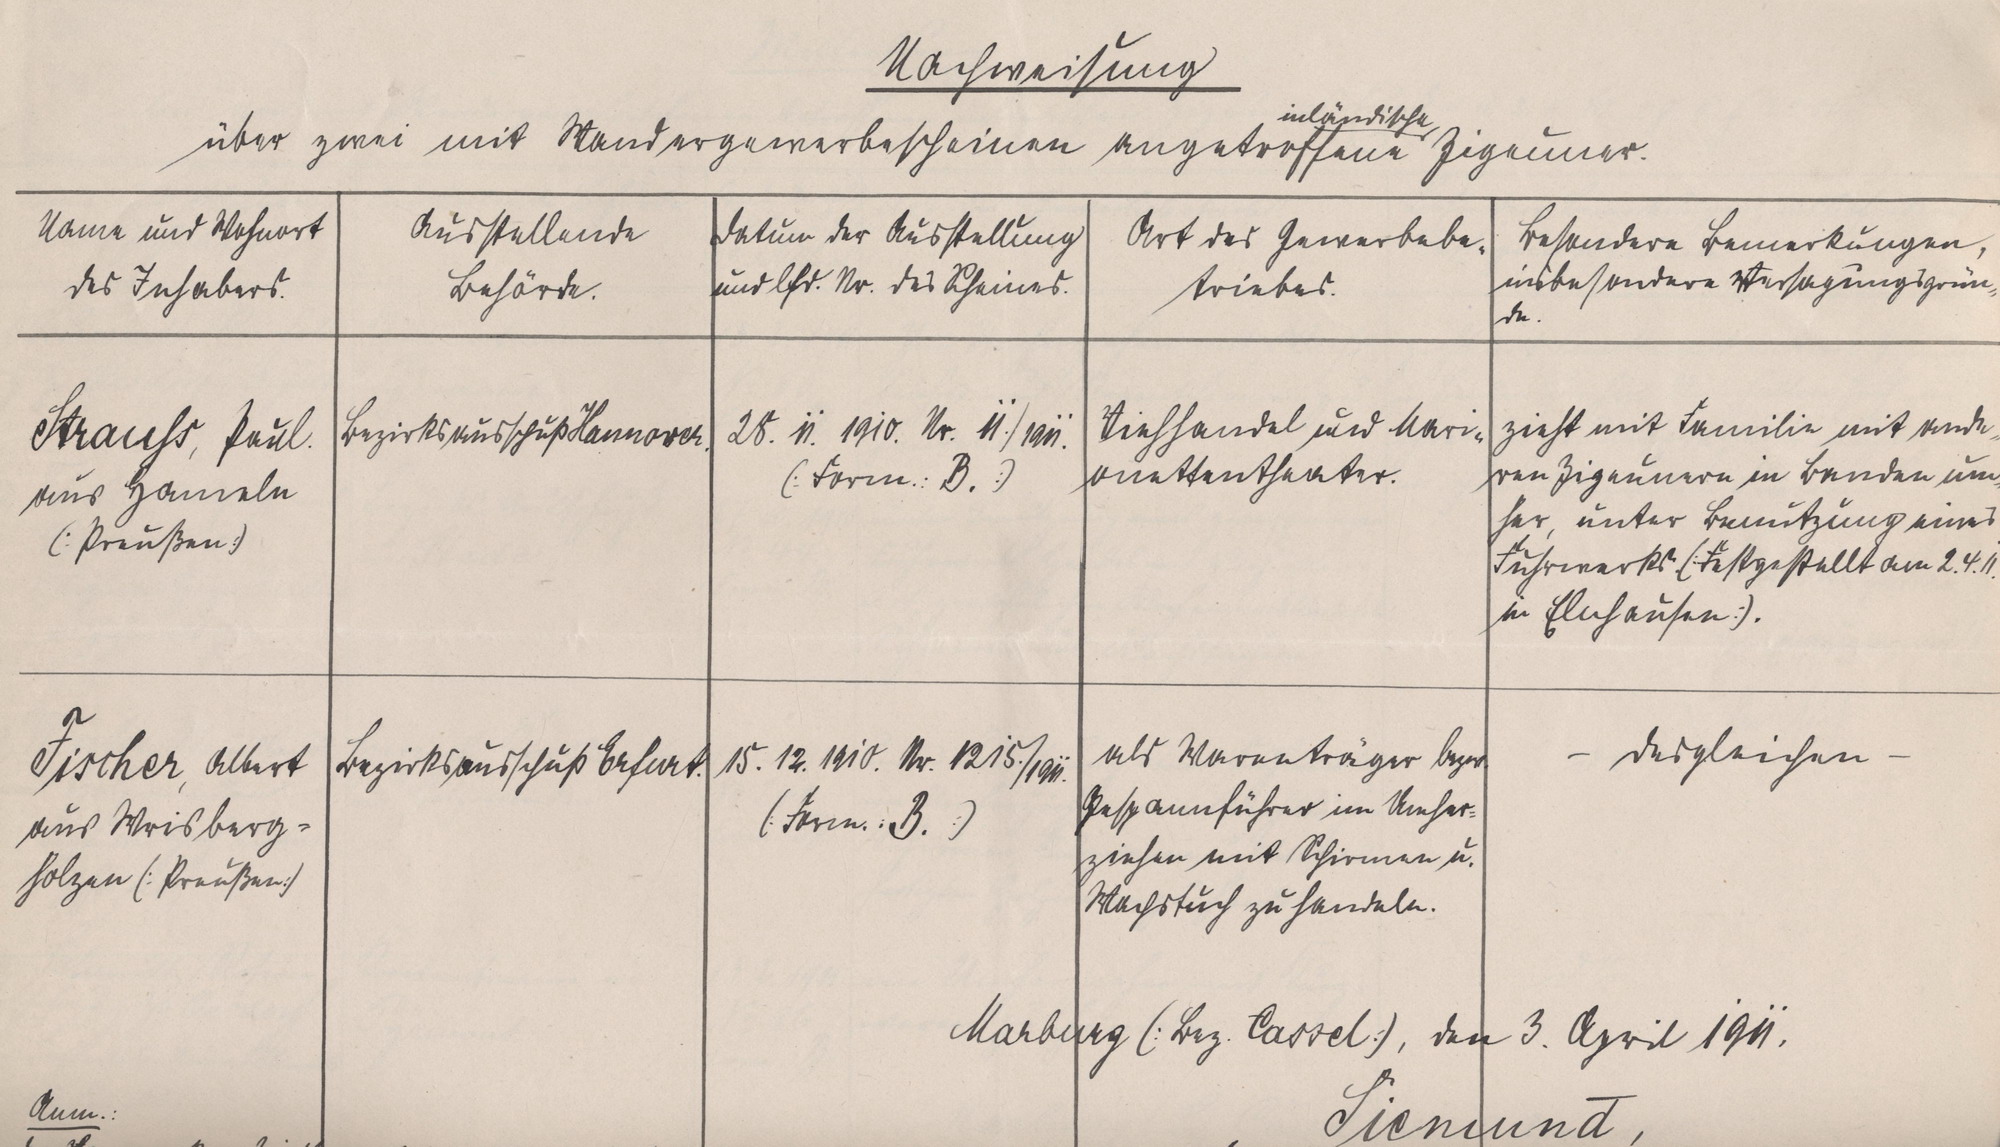 Nachweisung
über zwei mit Wandergewerbescheinen angetroffene inländische Zigeuner.
Name und Wohnort
des Inhabers.
Ausstellende
Behörde.
Datum der Ausstellung
und lfd. Nr. des Scheines.
Art des Gewerbebe-
triebes.
Besondere Bemerkungen,
insbesondere Versagungsgrün-
de.
Strauss, Paul.
aus Hameln
(: Preußen :)
Bezirksausschuß Hannover.
28. 11. 1910. Nr. 11./1911.
(: Form.: B. :)
Viehhandel und Mari-
onettentheater.
zieht mit Familie mit ande-
ren Zigeunern in Banden um-
her, unter Benutzung eines
Fuhrwerks (: Festgestellt am 2.4.11.
in Elnhausen :).
Fischer, Albert
aus Wrisberg-
holzen (: Preußen :)
Bezirksausschuß Erfurt.
15. 12. 1910. Nr. 1215./1911.
(: Form.: B. :)
als Warenträger bezw.
Gespannführer im Umher-
ziehen mit Schirmen u.
Wachstuch zu handeln.
- desgleichen -
Marburg (: Bez. Cassel :), den 3. April 1911.
Siemund,
Anm.: